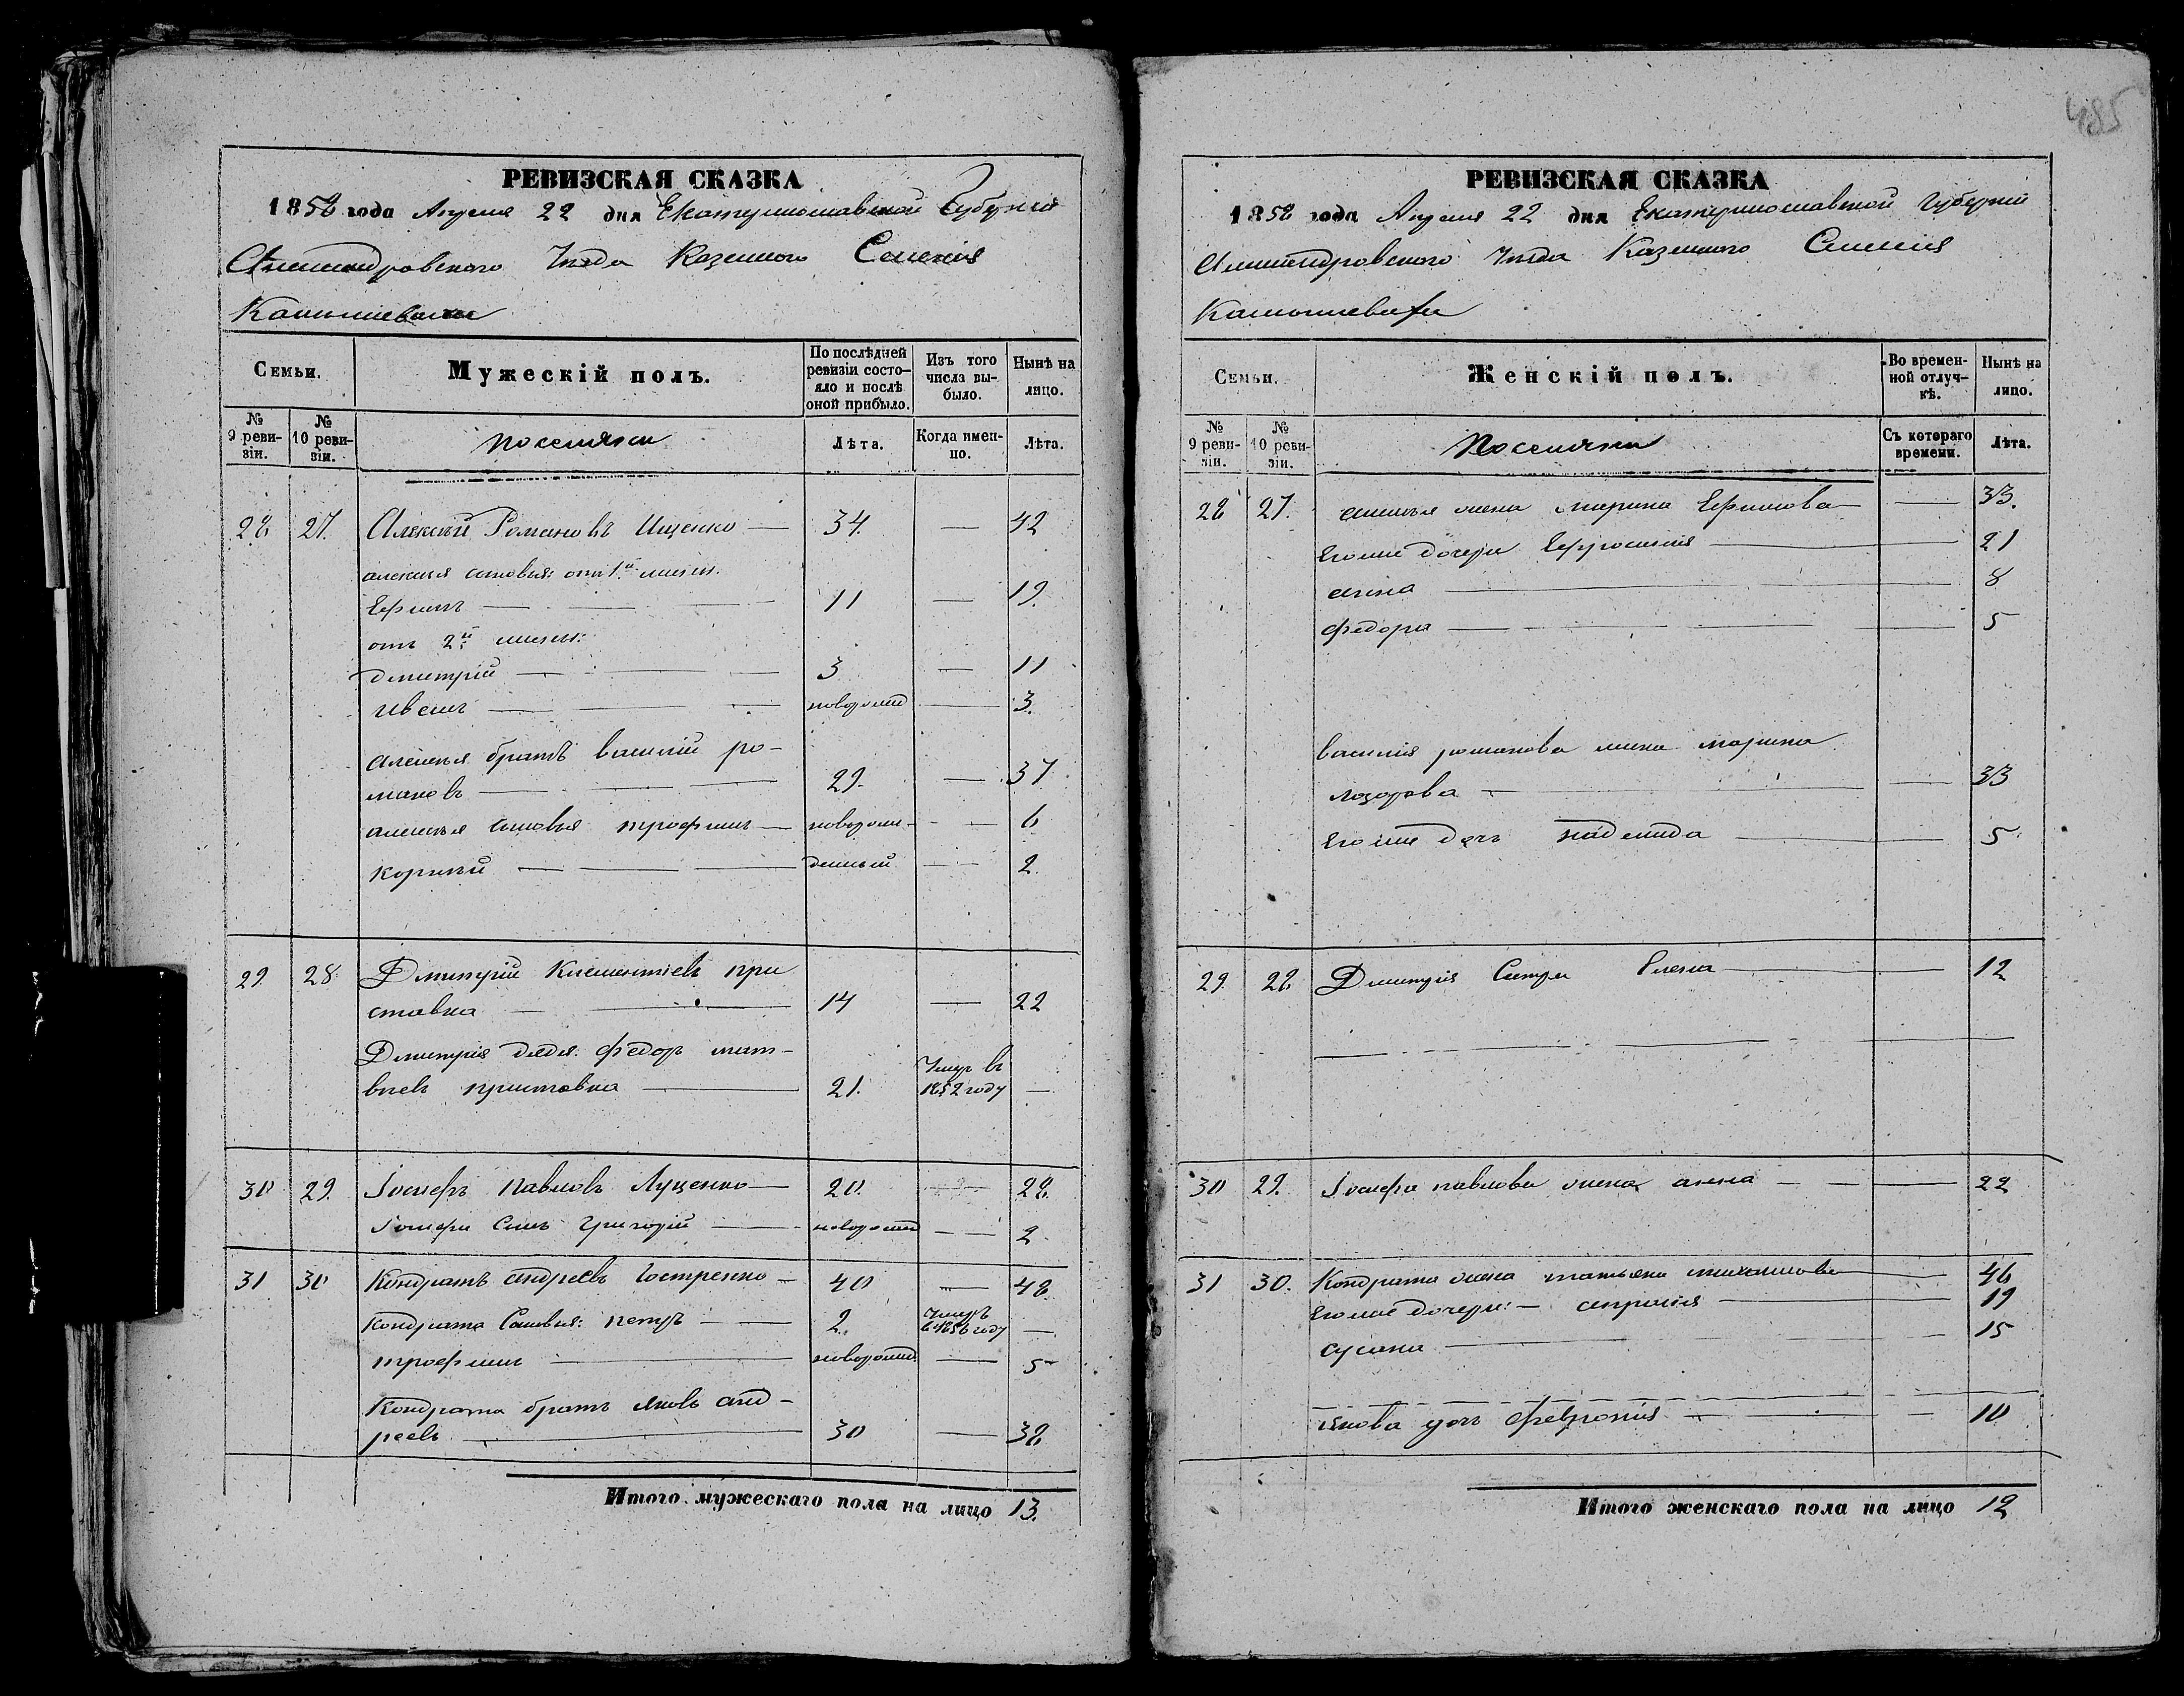 485
РЕВИЗСКАЯ СКАЗКА
1858 года Апреля 22 дня Екатеринославской Губерніи
Александровского Уезда Казенного Селенія
Камышевахи
Семьи. Мужескій полъ. По послѣдней ревизіи состояло и послѣ оной прибыло. Изъ того числа выбыло. Нынѣ на лицо.
№ 9 ревизіи. № 10 ревизіи. поселяни Лѣта. Когда именно. Лѣта.
28 27. Алексѣй Романовъ Ищенко — 34. — 42
алексѣя сыновья: отъ 1й жены.
Ефимъ — 11 — 19.
отъ 2й жены:
Дмитрій — 3 — 11
Иванъ — новорожд — 3.
Алексѣя братъ василій ро-
мановъ — 29. — 37
алексѣя сыновья трофимъ — новорож- — 6
корнѣй — денный — 2.
29. 28. Дмитрій Клементіевъ при
ставка — 14 — 22
Дмитрія дядя: Федоръ мат-
вѣевъ приставка — 21. Умеръ въ 1852 году —
30 29. Іосифъ павловъ Луценко — 20. — 28.
Іосифа Сынъ Григорій — новорожд — 2.
31 30 Кондратъ андреевъ Гостренко — 40 — 48
Кондрата Сыновья: петръ — 2. Умеръ в 1856 году —
трофимъ — новорожд. — 5
Кондрата братъ яковъ анд-
реевъ — 30 — 38
Итого мужескаго пола на лицо 13.
РЕВИЗСКАЯ СКАЗКА
1858 года Апреля 22 дня Екатеринославской Губерніи
Александровского Уезда Казенного Селенія
Камышевахи
Семьи. Женскій полъ. Во временной отлучкѣ. Нынѣ на лицо.
№ 9 ревизіи. № 10 ревизіи. Поселянки Съ котораго времени. Лѣта.
28 27. алексѣя жена марина Ефимова — 33.
Егоже дочери Ефросинія — 21
анна — 8
федора — 5
василія романова жена марина
лазорева — 33
Егоже дочь надежда — 5
29. 28 Дмитрія Сестра Елена — 12
30 29. Іосифа павлова жена анна — 22
31 30. Кондрата жена татьяна михайлова — 46
Егоже дочери: — апросія — 19
сусана — 15
якова дочь Февронія — 10
Итого женскаго пола на лицо 12